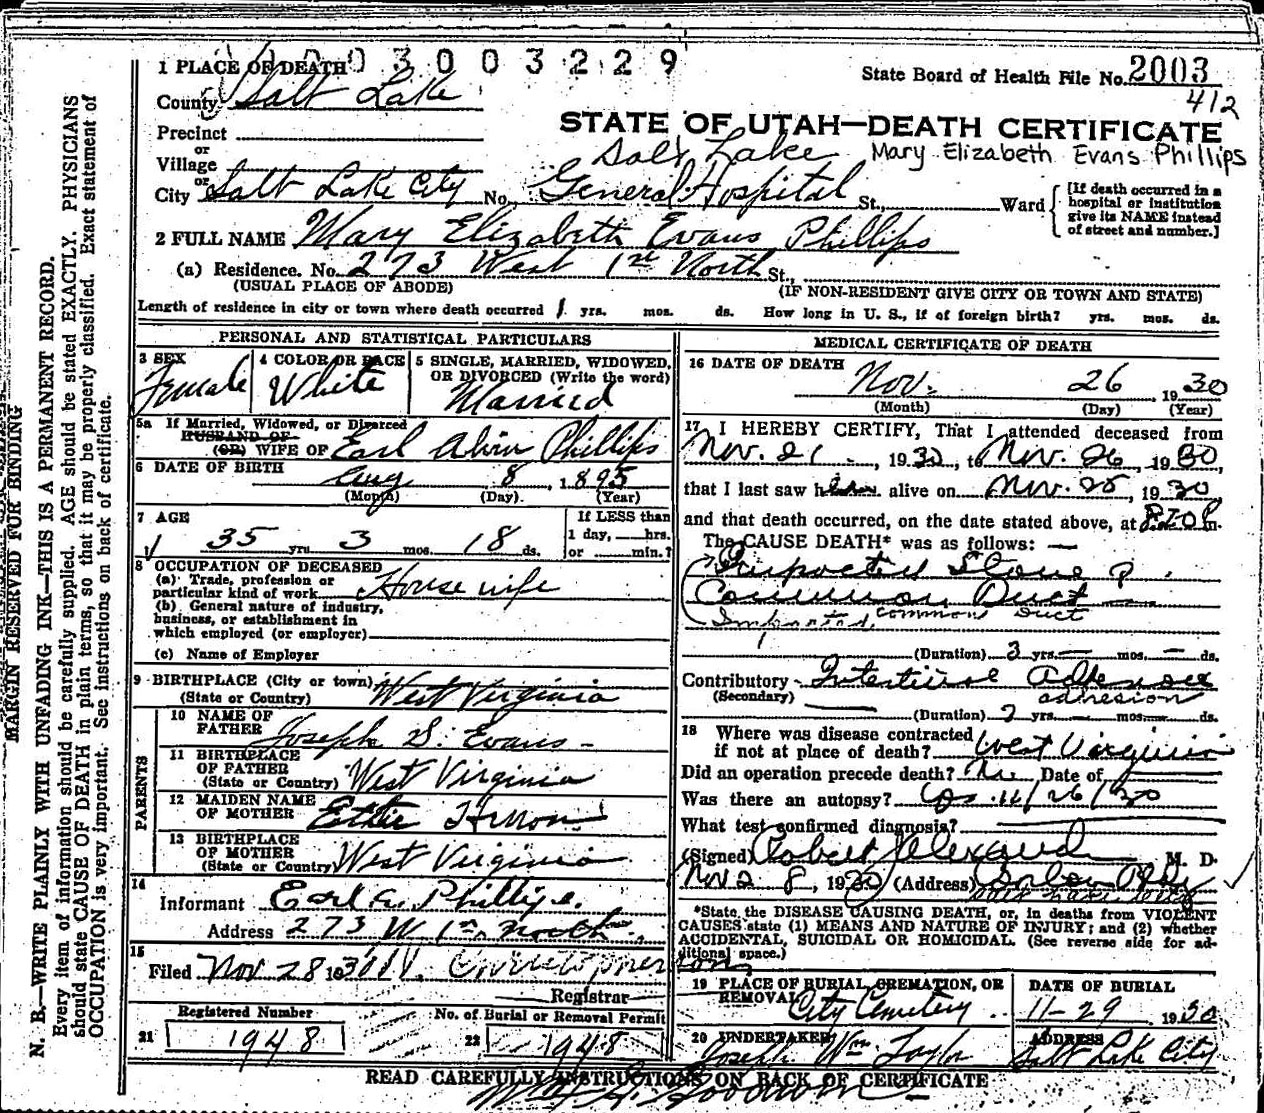 003003229
1 PLACE OF DEATH
State Board of Health File No. 2003
412
County Salt Lake
STATE OF UTAH—DEATH CERTIFICATE
Precinct
or
Village
Salt Lake Mary Elizabeth Evans Phillips
or
City Salt Lake City No. General Hospital St., Ward
[If death occurred in a
hospital or institution
give its NAME instead
of street and number.]
2 FULL NAME Mary Elizabeth Evans Phillips
(a) Residence. No. 273 West 1st North St.,
(USUAL PLACE OF ABODE) (IF NON-RESIDENT GIVE CITY OR TOWN AND STATE)
Length of residence in city or town where death occurred 1 yrs. mos. ds. How long in U. S., if of foreign birth? yrs. mos. ds.
PERSONAL AND STATISTICAL PARTICULARS
3 SEX
Female
4 COLOR OR RACE
White
5 SINGLE, MARRIED, WIDOWED,
OR DIVORCED (Write the word)
Married
5a If Married, Widowed, or Divorced
HUSBAND OF
(OR) WIFE OF Earl Alvin Phillips
6 DATE OF BIRTH Aug. 8, 1895
(Month) (Day). (Year)
7 AGE
35 yrs. 3 mos. 18 ds.
If LESS than
1 day, hrs.
or min.?
8 OCCUPATION OF DECEASED
(a) Trade, profession or
particular kind of work House wife
(b) General nature of industry,
business, or establishment in
which employed (or employer)
(c) Name of Employer
9 BIRTHPLACE (City or town)
(State or Country) West Virginia
PARENTS
10 NAME OF
FATHER Joseph S. Evans
11 BIRTHPLACE
OF FATHER
(State or Country) West Virginia
12 MAIDEN NAME
OF MOTHER Ettie
13 BIRTHPLACE
OF MOTHER
(State or Country) West Virginia
14
Informant Earl A. Phillips.
Address 273 W 1st North
15
Filed Nov 28 1930
Registrar
Registered Number
21 1948
No. of Burial or Removal Permit
22 1948
MEDICAL CERTIFICATE OF DEATH
16 DATE OF DEATH
Nov. 26, 1930
(Month) (Day) (Year)
17 I HEREBY CERTIFY, That I attended deceased from
Nov. 21, 1930, to Nov. 26, 1930,
that I last saw her alive on Nov. 25, 1930
and that death occurred, on the date stated above, at m.
The CAUSE DEATH* was as follows:
Impacted Stone
Common Duct
Impacted, common duct
(Duration) 3 yrs. mos. ds.
Contributory Intestinal Adhesions
(Secondary) adhesion
(Duration) 2 yrs. mos. ds.
18 Where was disease contracted
if not at place of death? West Virginia
Did an operation precede death? No Date of
Was there an autopsy? Yes 11/26/30
What test confirmed diagnosis?
(Signed) Robert M. D.
Nov 28, 1930 (Address)
Salt Lake City
*State the DISEASE CAUSING DEATH, or, in deaths from VIOLENT
CAUSES state (1) MEANS AND NATURE OF INJURY; and (2) whether
ACCIDENTAL, SUICIDAL OR HOMICIDAL. (See reverse side for ad-
ditional space.)
19 PLACE OF BURIAL, CREMATION, OR
REMOVAL City Cemetery
DATE OF BURIAL
11-29 1930
20 UNDERTAKER
Joseph Wm. Taylor
ADDRESS
Salt Lake City
READ CAREFULLY INSTRUCTIONS ON BACK OF CERTIFICATE
MARGIN RESERVED FOR BINDING
N. B.—WRITE PLAINLY WITH UNFADING INK—THIS IS A PERMANENT RECORD.
Every item of information should be carefully supplied. AGE should be stated EXACTLY. PHYSICIANS
should state CAUSE OF DEATH in plain terms, so that it may be properly classified. Exact statement of
OCCUPATION is very important. See instructions on back of certificate.